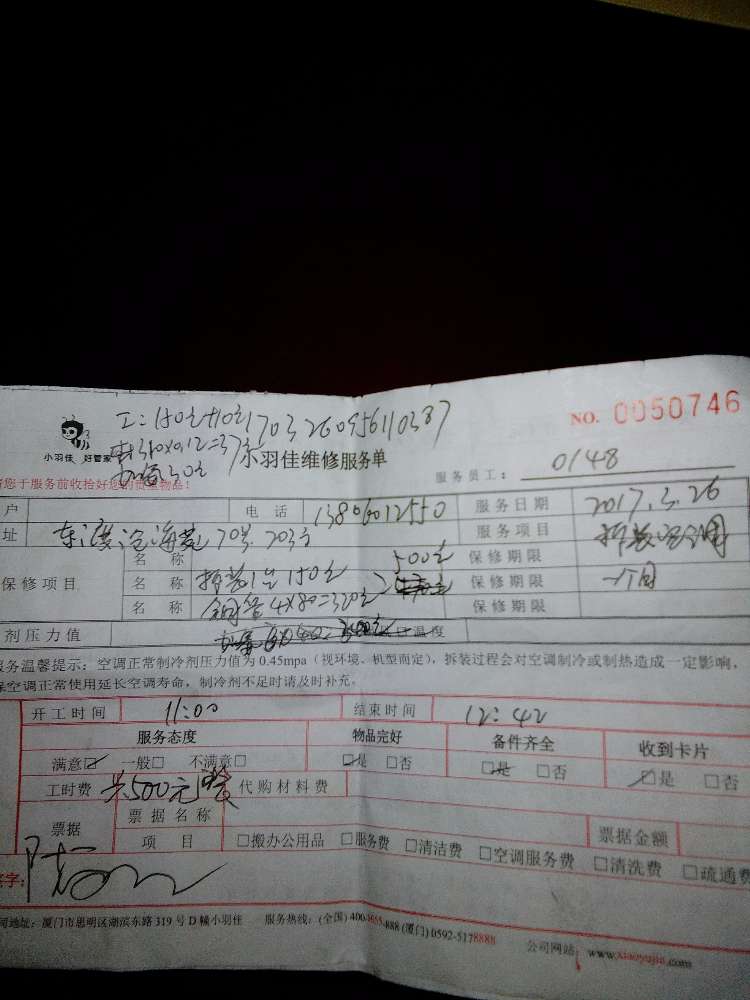 NO. 0050746
工:150元+10元 1703260956110387
小羽佳 好管家
小羽佳维修服务单
服务员工: 0148
您于服务前收拾好您的贵重物品!
户 电话 13806012550 服务日期 2017.3.26
址 东渡沧海苑70号203 服务项目 拆装空调
保修项目 名称 500元 保修期限
名称 拆装1台150元 保修期限 一个月
名称 铜管4X80=320元 保修期限
剂压力值 温度
服务温馨提示:空调正常制冷剂压力值为0.45mpa(视环境、机型而定),拆装过程会对空调制冷或制热造成一定影响,
保空调正常使用延长空调寿命,制冷剂不足时请及时补充。
开工时间 11:00 结束时间 12:42
服务态度 物品完好 备件齐全 收到卡片
满意☑ 一般□ 不满意□ ☑是 □否 ☑是 □否 ☑是 □否
工时费 共500元整 代购材料费
票据 票据名称 票据金额
项目 □搬办公用品 □服务费 □清洁费 □空调服务费 □清洗费 □疏通费
签字:
司地址:厦门市思明区湖滨东路319号D幢小羽佳 服务热线:(全国)400-8855-888 (厦门)0592-5178888 公司网站:www.xiaoyujia.com